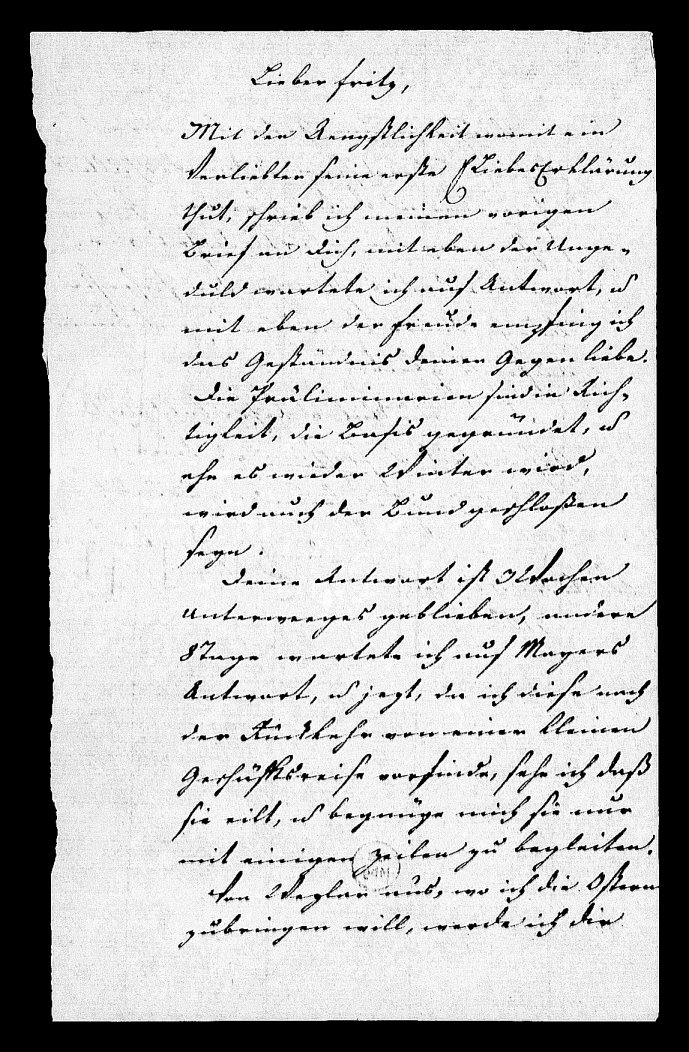 Lieber Fritz,
Mit der Aengstlichkeit womit ein
Verliebter seine erste LiebesErklärung
thut, schrieb ich meinen vorigen
Brief an dich, mit eben der Unge-
duld wartete ich auf Antwort, u
mit eben der Freude empfing ich
das Geständnis deiner Gegenliebe.
Die Präliminarien sind in Rich-
tigkeit, die Basis gegründet, u
ehe es wieder Winter wird,
wird auch der Bund geschloßen
seyn.
Deine Antwort ist 3 Wochen
Unterweeges geblieben, andere
8 Tage wartete ich auf Mayers
Antwort, u jezt, da ich diese nach
der Rückkehr von einer kleinen
Geschäftsreise vorfinde, sehe ich daß
sie eilt, u begnüge mich sie nur
mit einigen Zeilen zu begleiten.
Von Wezlar aus, wo ich die Ostern
zubringen will, werde ich dir